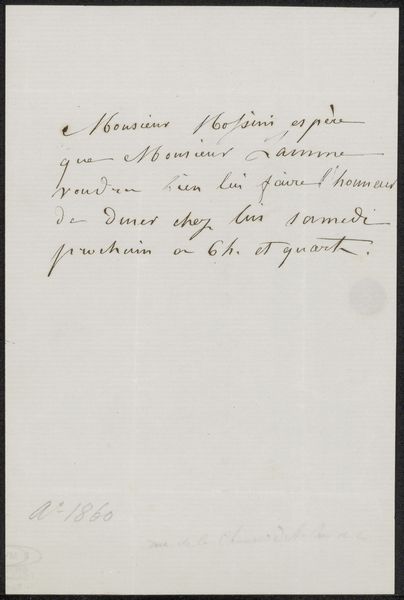 Monsieur Rossini espère
que Monsieur Lamme
voudra bien lui faire l'honneur
de diner chez lui samedi
prochain a 6h. et quart.
Ao 1860
rue de la Chaussée d'Antin